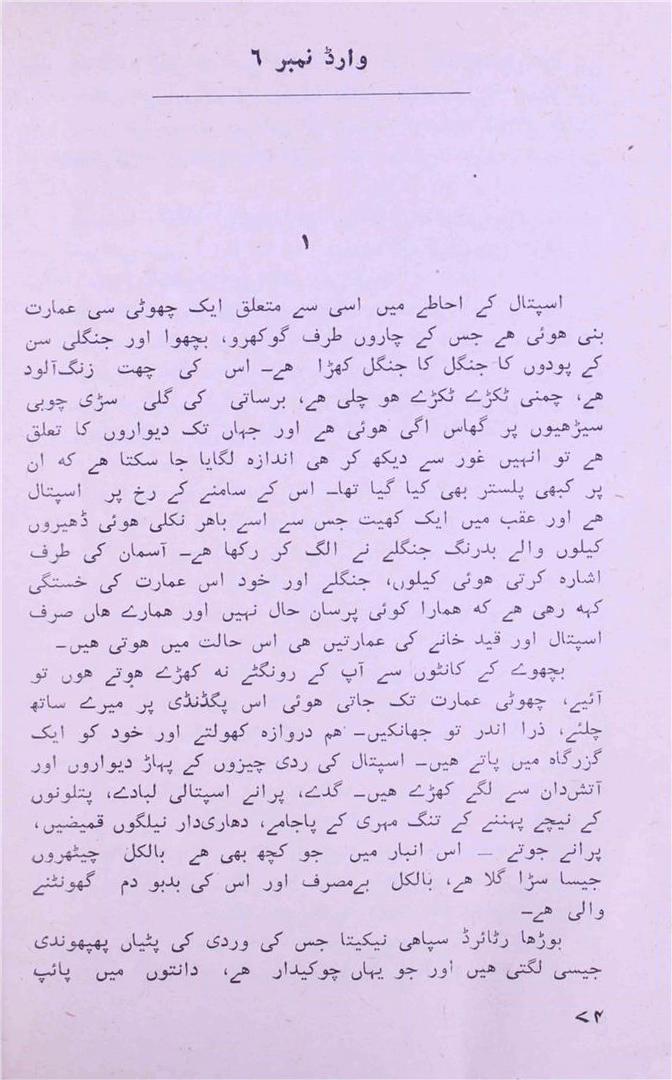 وارڈ نمبر ٦
۱
اسپتال کے احاطے میں اسی سے متعلق ایک چھوٹی سی عمارت
بنی ھوئی ھے جس کے چاروں طرف گوکھرو، بچھوا اور جنگلی سن
کے پودوں کا جنگل کا جنگل کھڑا ھے۔ اس کی چھت زنگ‌آلود
ھے، چمنی ٹکڑے ٹکڑے ھو چلی ھے، برساتی کی گلی سڑی چوبی
سیڑھیوں پر گھاس اگی ھوئی ھے اور جہاں تک دیواروں کا تعلق
ھے تو انہیں غور سے دیکھ کر ھی اندازہ لگایا جا سکتا ھے کہ ان
پر کبھی پلستر بھی کیا گیا تھا۔ اس کے سامنے کے رخ پر اسپتال
ھے اور عقب میں ایک کھیت جس سے اسے باھر نکلی ھوئی ڈھیروں
کیلوں والے بدرنگ جنگلے نے الگ کر رکھا ھے۔ آسمان کی طرف
اشارہ کرتی ھوئی کیلوں، جنگلے اور خود اس عمارت کی خستگی
کہہ رھی ھے کہ ھمارا کوئی پرسان حال نہیں اور ھمارے ھاں صرف
اسپتال اور قید خانے کی عمارتیں ھی اس حالت میں ھوتی ھیں۔
بچھوے کے کانٹوں سے آپ کے رونگٹے نہ کھڑے ھوتے ھوں تو
آئیے، چھوٹی عمارت تک جاتی ھوئی اس پگڈنڈی پر میرے ساتھ
چلئے، ذرا اندر تو جھانکیں۔ ھم دروازہ کھولتے اور خود کو ایک
گزرگاہ میں پاتے ھیں۔ اسپتال کی ردی چیزوں کے پہاڑ دیواروں اور
آتش‌دان سے لگے کھڑے ھیں۔ گدے، پرانے اسپتالی لبادے، پتلونوں
کے نیچے پہننے کے تنگ مہری کے پاجامے، دھاری‌دار نیلگوں قمیضیں،
پرانے جوتے — اس انبار میں جو کچھ بھی ھے بالکل چیتھڑوں
جیسا سڑا گلا ھے، بالکل بے‌مصرف اور اس کی بدبو دم گھونٹنے
والی ھے۔
بوڑھا رٹائرڈ سپاھی نیکیتا جس کی وردی کی پٹیاں پھپھوندی
جیسی لگتی ھیں اور جو یہاں چوکیدار ھے، دانتوں میں پائپ
۷۴